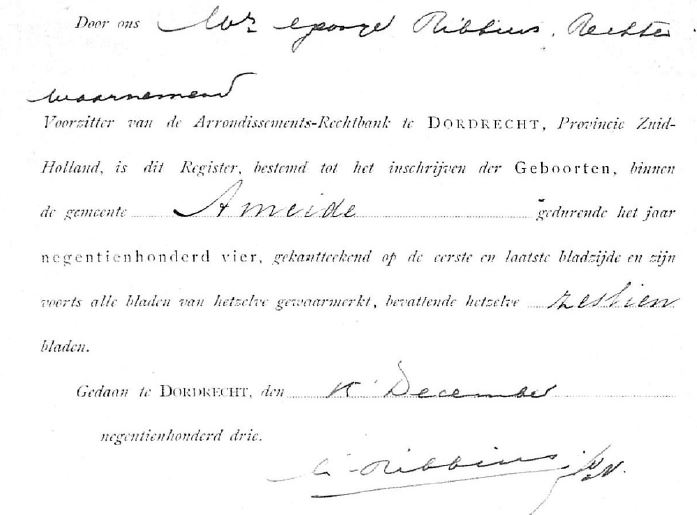 Door ons Mr George Ribbius, Rechter
waarnemend
Voorzitter van de Arrondissements-Rechtbank te DORDRECHT, Provincie Zuid-
Holland, is dit Register, bestemd tot het inschrijven der Geboorten, binnen
de gemeente Ameide gedurende het jaar
negentienhonderd vier, gekantteekend op de eerste en laatste bladzijde en zijn
voorts alle bladen van hetzelve gewaarmerkt, bevattende hetzelve zestien
bladen.
Gedaan te DORDRECHT, den December
negentienhonderd drie.
G. Ribbius